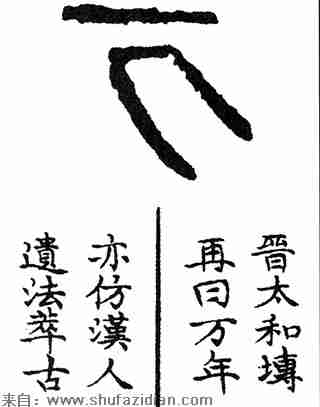 万
晉太和塼
再曰万年
亦仿漢人
遺法萃古
来自：www.shufazidian.com